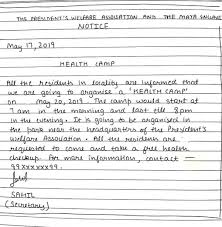 THE PRESIDENT'S WELFARE ASSOCIATION AND THE MAYA
NOTICE
May 17, 2019
HEALTH CAMP
All the residents in locality are informed that
we are going to organise a 'HEALTH CAMP'
on May 20, 2019. The camp would start at
7 am in the morning and last till 8 pm
in the evening. It is going to be organised in
the park near the headquarters of the President's
Welfare Association. All the residents are
requested to come and take a free health
checkup. For more information, contact —
99xxxxxx99.
SAHIL
(Secretary)